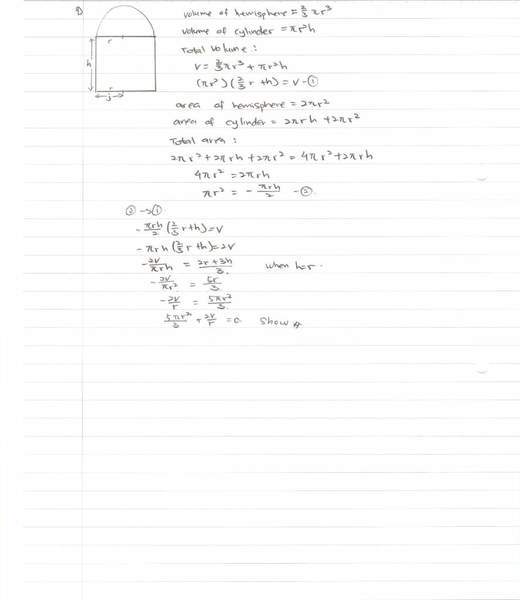 D
r
h
r
volume of hemisphere = 2/3 πr³
volume of cylinder = πr²h
Total volume :
V = 2/3 πr³ + πr²h
(πr²)(2/3 r + h) = V - ①
area of hemisphere = 2πr²
area of cylinder = 2πrh + 2πr²
Total area :
2πr² + 2πrh + 2πr² = 4πr² + 2πrh
4πr² = 2πrh
πr² = - πrh/2 - ②
② → ①
- πrh/2 (2/3 r + h) = V
- πrh (2/3 r + h) = 2V
- 2V/πrh = 2r + 3h/3. when h=r.
- 2V/πr² = 5r/3.
- 2V/r = 5πr²/3.
5πr²/3 + 2V/r = 0. Show #